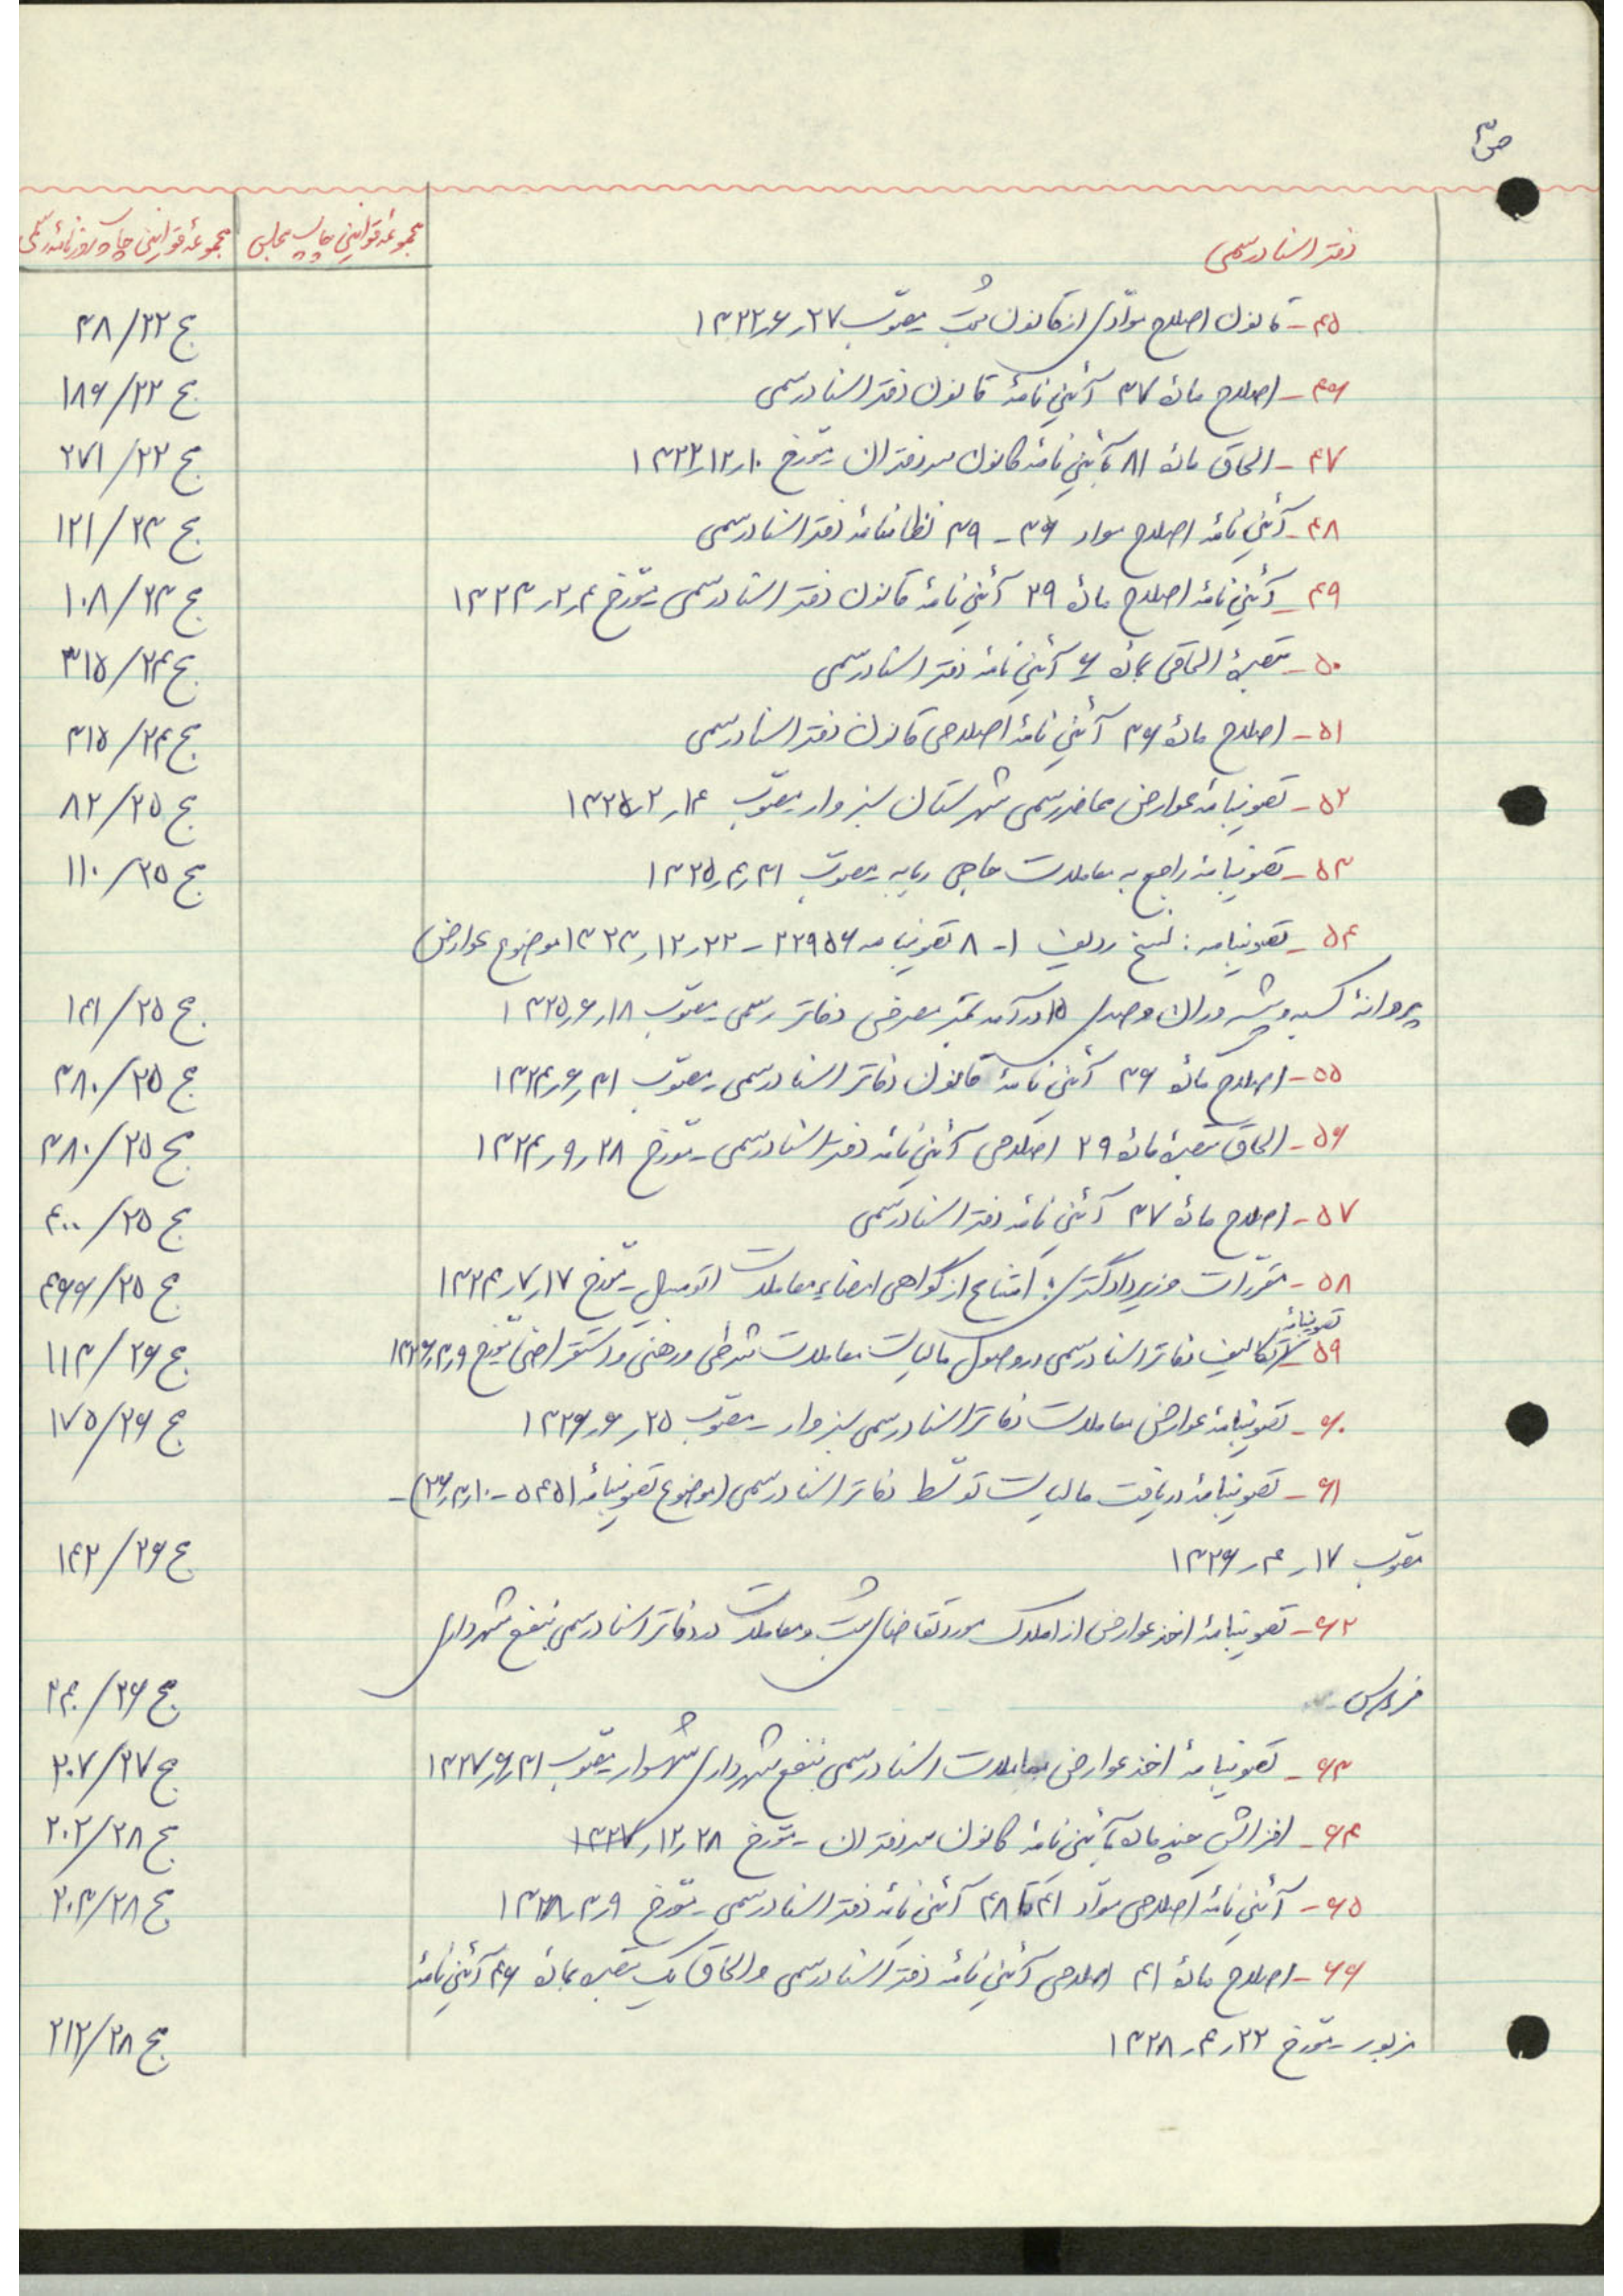 ص ۳
دفتر اسناد رسمی
مجموعهٔ قوانین چاپ مجلس
مجموعهٔ قوانین چاپ روزنامه رسمی
۴۵ - قانون اصلاح موادّی از قانون ثبت مصوّب ۲۷ر۶ر۱۳۲۲ ج ۲۲/ ۳۸
۴۶ - اصلاح مادهٔ ۳۷ آئین نامهٔ قانون دفتر اسناد رسمی ج ۲۲/ ۱۸۶
۴۷ - الحاق مادهٔ ۸۱ بآئین نامهٔ کانون سردفتران مورّخ ۱۰ر۱۲ر۱۳۲۲ ج ۲۲/ ۲۷۱
۴۸ - آئین نامهٔ اصلاح مواد ۳۶ - ۳۹ نظامنامهٔ دفتر اسناد رسمی ج ۲۳/ ۱۲۱
۴۹ - آئین نامهٔ اصلاح مادهٔ ۲۹ آئین نامهٔ قانون دفتر اسناد رسمی مورّخ ۴ر۲ر۱۳۲۳ ج ۲۳/ ۱۰۸
۵۰ - تبصرهٔ الحاقی بمادهٔ ۶ آئین نامهٔ دفتر اسناد رسمی ج ۲۴/ ۳۱۵
۵۱ - اصلاح مادهٔ ۳۶ آئین نامهٔ اصلاحی قانون دفتر اسناد رسمی ج ۲۴/ ۳۱۵
۵۲ - تصویبنامهٔ عوارض محاضر رسمی شهرستان سبزوار مصوّب ۱۴ر۲ر۱۳۲۵ ج ۲۵/ ۸۲
۵۳ - تصویبنامهٔ راجع به معاملات حاجی ربابه مصوب ۳۱ر۴ر۱۳۲۵ ج ۲۵/ ۱۱۰
۵۴ - تصویبنامه : نسخ ردیف ۱ - ۸ تصویبنامه ۲۲۹۵۶ - ۲۲ر۱۲ر۱۳۲۳ موضوع عوارض
پروانهٔ کسبه و پیشه وران و صدی ۱۵ درآمد تمبر مصرفی دفاتر رسمی مصوّب ۱۸ر۶ر۱۳۲۵ ج ۲۵/ ۱۴۱
۵۵ - اصلاح مادهٔ ۳۶ آئین نامهٔ قانون دفاتر اسناد رسمی مصوّب ۳۱ر۶ر۱۳۲۴ ج ۲۵/ ۳۸۰
۵۶ - الحاق تبصرهٔ مادهٔ ۲۹ اصلاحی آئین نامهٔ دفتر اسناد رسمی مورّخ ۲۸ر۹ر۱۳۲۴ ج ۲۵/ ۳۸۰
۵۷ - اصلاح مادهٔ ۳۷ آئین نامهٔ دفتر اسناد رسمی ج ۲۵/ ۴۰۰
۵۸ - مقرّرات وزیر دادگستری : امتناع از گواهی امضاء معاملات اتومبیل مورّخ ۱۷ر۷ر۱۳۲۴ ج ۲۵/ ۴۶۶
تصویبنامهٔ
۵۹ - تکالیف دفاتر اسناد رسمی در وصول مالیات معاملات شرطی و رهنی و استقراضی مورّخ ۹ر۳ر۱۳۲۶ ج ۲۶/ ۱۱۳
۶۰ - تصویبنامهٔ عوارض معاملات دفاتر اسناد رسمی سبزوار مصوّب ۲۵ر۶ر۱۳۲۶ ج ۲۶/ ۱۷۵
۶۱ - تصویبنامهٔ دریافت مالیات توسّط دفاتر اسناد رسمی (موضوع تصویبنامهٔ ۵۴۵۱ - ۱۰ر۳ر۲۶) -
مصوّب ۱۷ر۴ر۱۳۲۶ ج ۲۶/ ۱۴۲
۶۲ - تصویبنامهٔ اخذ عوارض از املاک مورد تقاضای ثبت و معاملات در دفاتر اسناد رسمی بنفع شهرداری
فردوس ج ۲۶/ ۲۴۰
۶۳ - تصویبنامهٔ اخذ عوارض معاملات اسناد رسمی بنفع شهرداری شهسوار مصوّب ۳۱ر۶ر۱۳۲۷ ج ۲۷/ ۲۰۷
۶۴ - افزایش چند ماده بآئین نامهٔ کانون سردفتران مورّخ ۲۸ر۱۲ر۱۳۲۷ ج ۲۸/ ۲۰۲
۶۵ - آئین نامهٔ اصلاحی موادّ ۴۱ تا ۴۸ آئین نامهٔ دفتر اسناد رسمی مورّخ ۹ر۳ر۱۳۲۸ ج ۲۸/ ۲۰۳
۶۶ - اصلاح مادهٔ ۴۱ اصلاحی آئین نامهٔ دفتر اسناد رسمی و الحاق یک تبصره بمادهٔ ۴۶ آئین نامهٔ
مزبور مورّخ ۲۲ر۴ر۱۳۲۸ ج ۲۸/ ۲۱۲